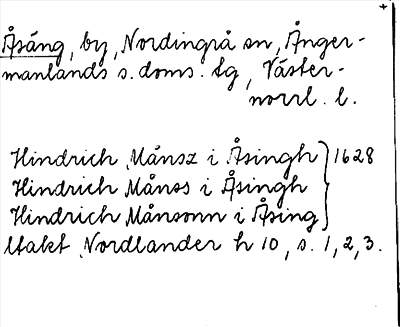 Åsäng, by, Nordingrå sn, Ånger-
manlands s. doms. lg, Väster-
norrl. l.
Hindrich Månsz i Åsingh } 1628
Hindrich Månss i Åsingh
Hindrich Månsonn i Åsing
Utakt Nordlander h 10, s. 1, 2, 3.